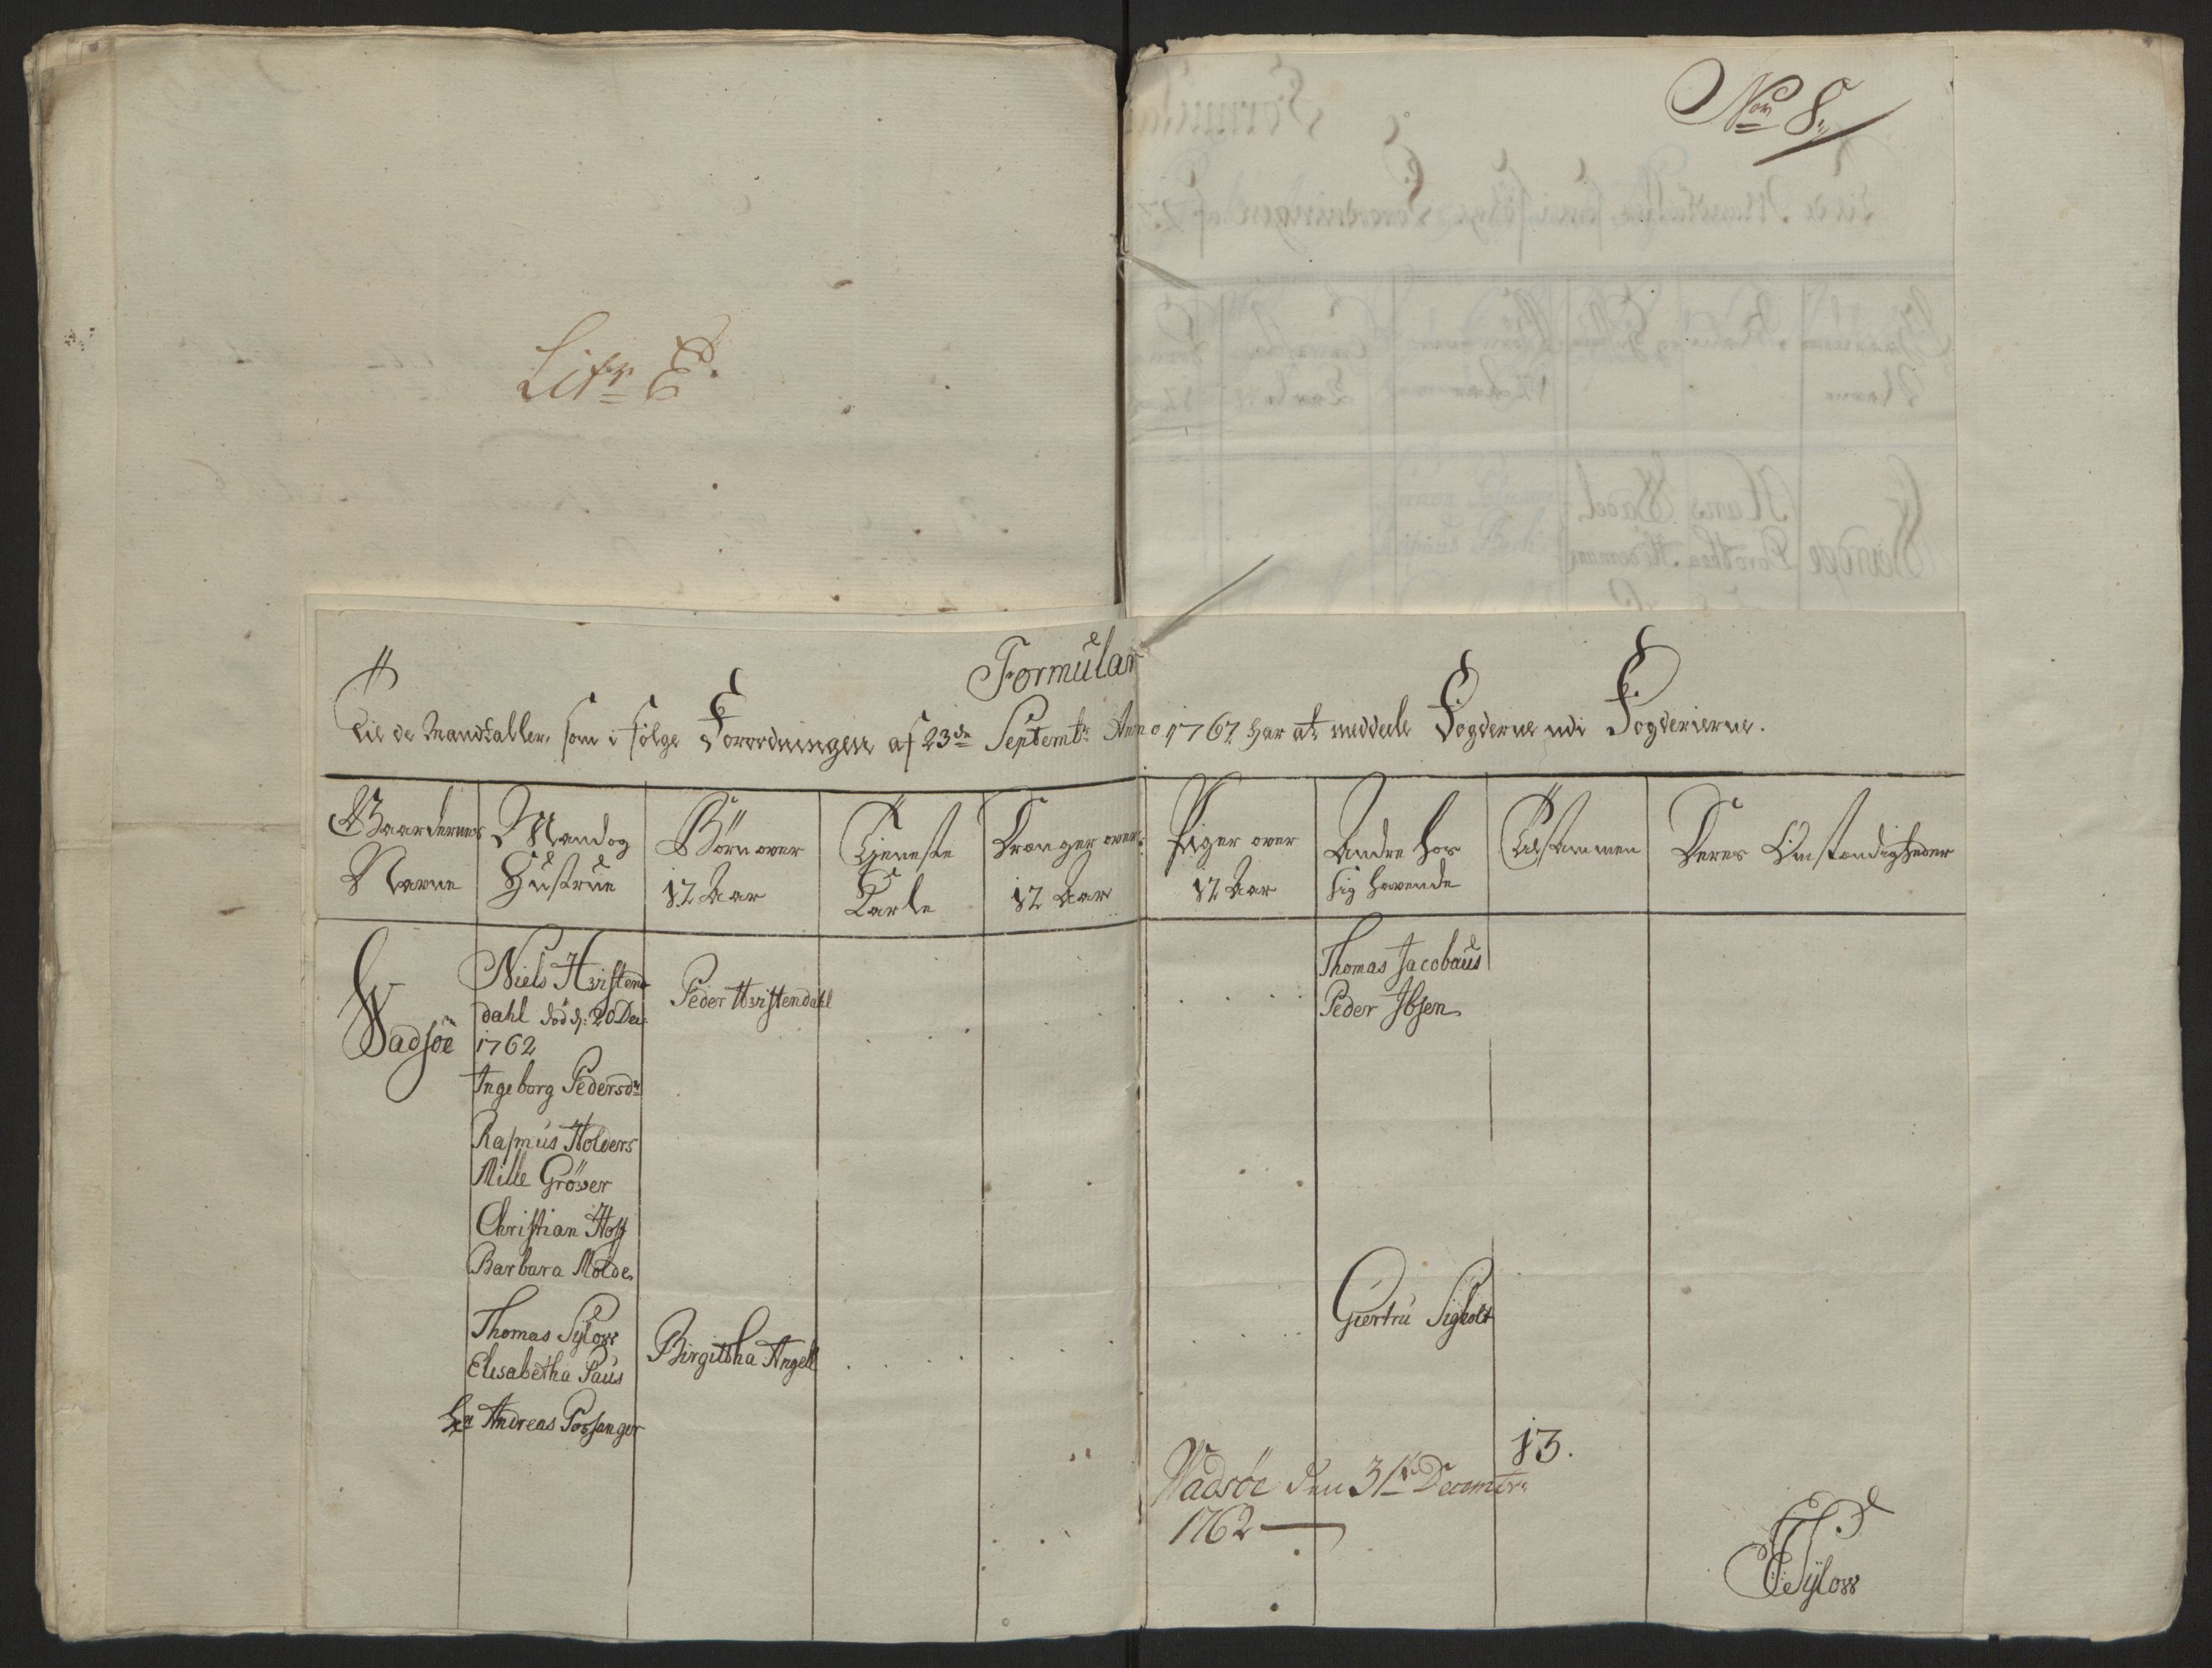 No 8.
Litr E.
Formular
Til de Mandtaller, som i følge Forordningen af 23de Septembr Anno 1762 har at meddeele Fogderne udi Fogderierne.
Gaardernes Navne
Mand og Hustrue
Börn over 12 Aar
Tieneste Karle
Drenger over 12 Aar
Piger over 12 Aar
Andre hos sig havende
Til sammen
Deres Omstændigheder
Wadsöe
Niels Hvistendahl död d: 20 Dec. 1762
Peder Hvistendahl
Thomas Jacobæus
Peder Ibsen
Ingeborg Pedersdr
Rasmus Holders
Mille Gröver
Christian Hoff
Barbara Molde
Thomas Sylow
Elisabetha Paus
Birgittha Angell
Giertru Sigholt
Hr Andreas Porsanger
13.
Wadsöe den 31te Decembr:
1762
TSylow